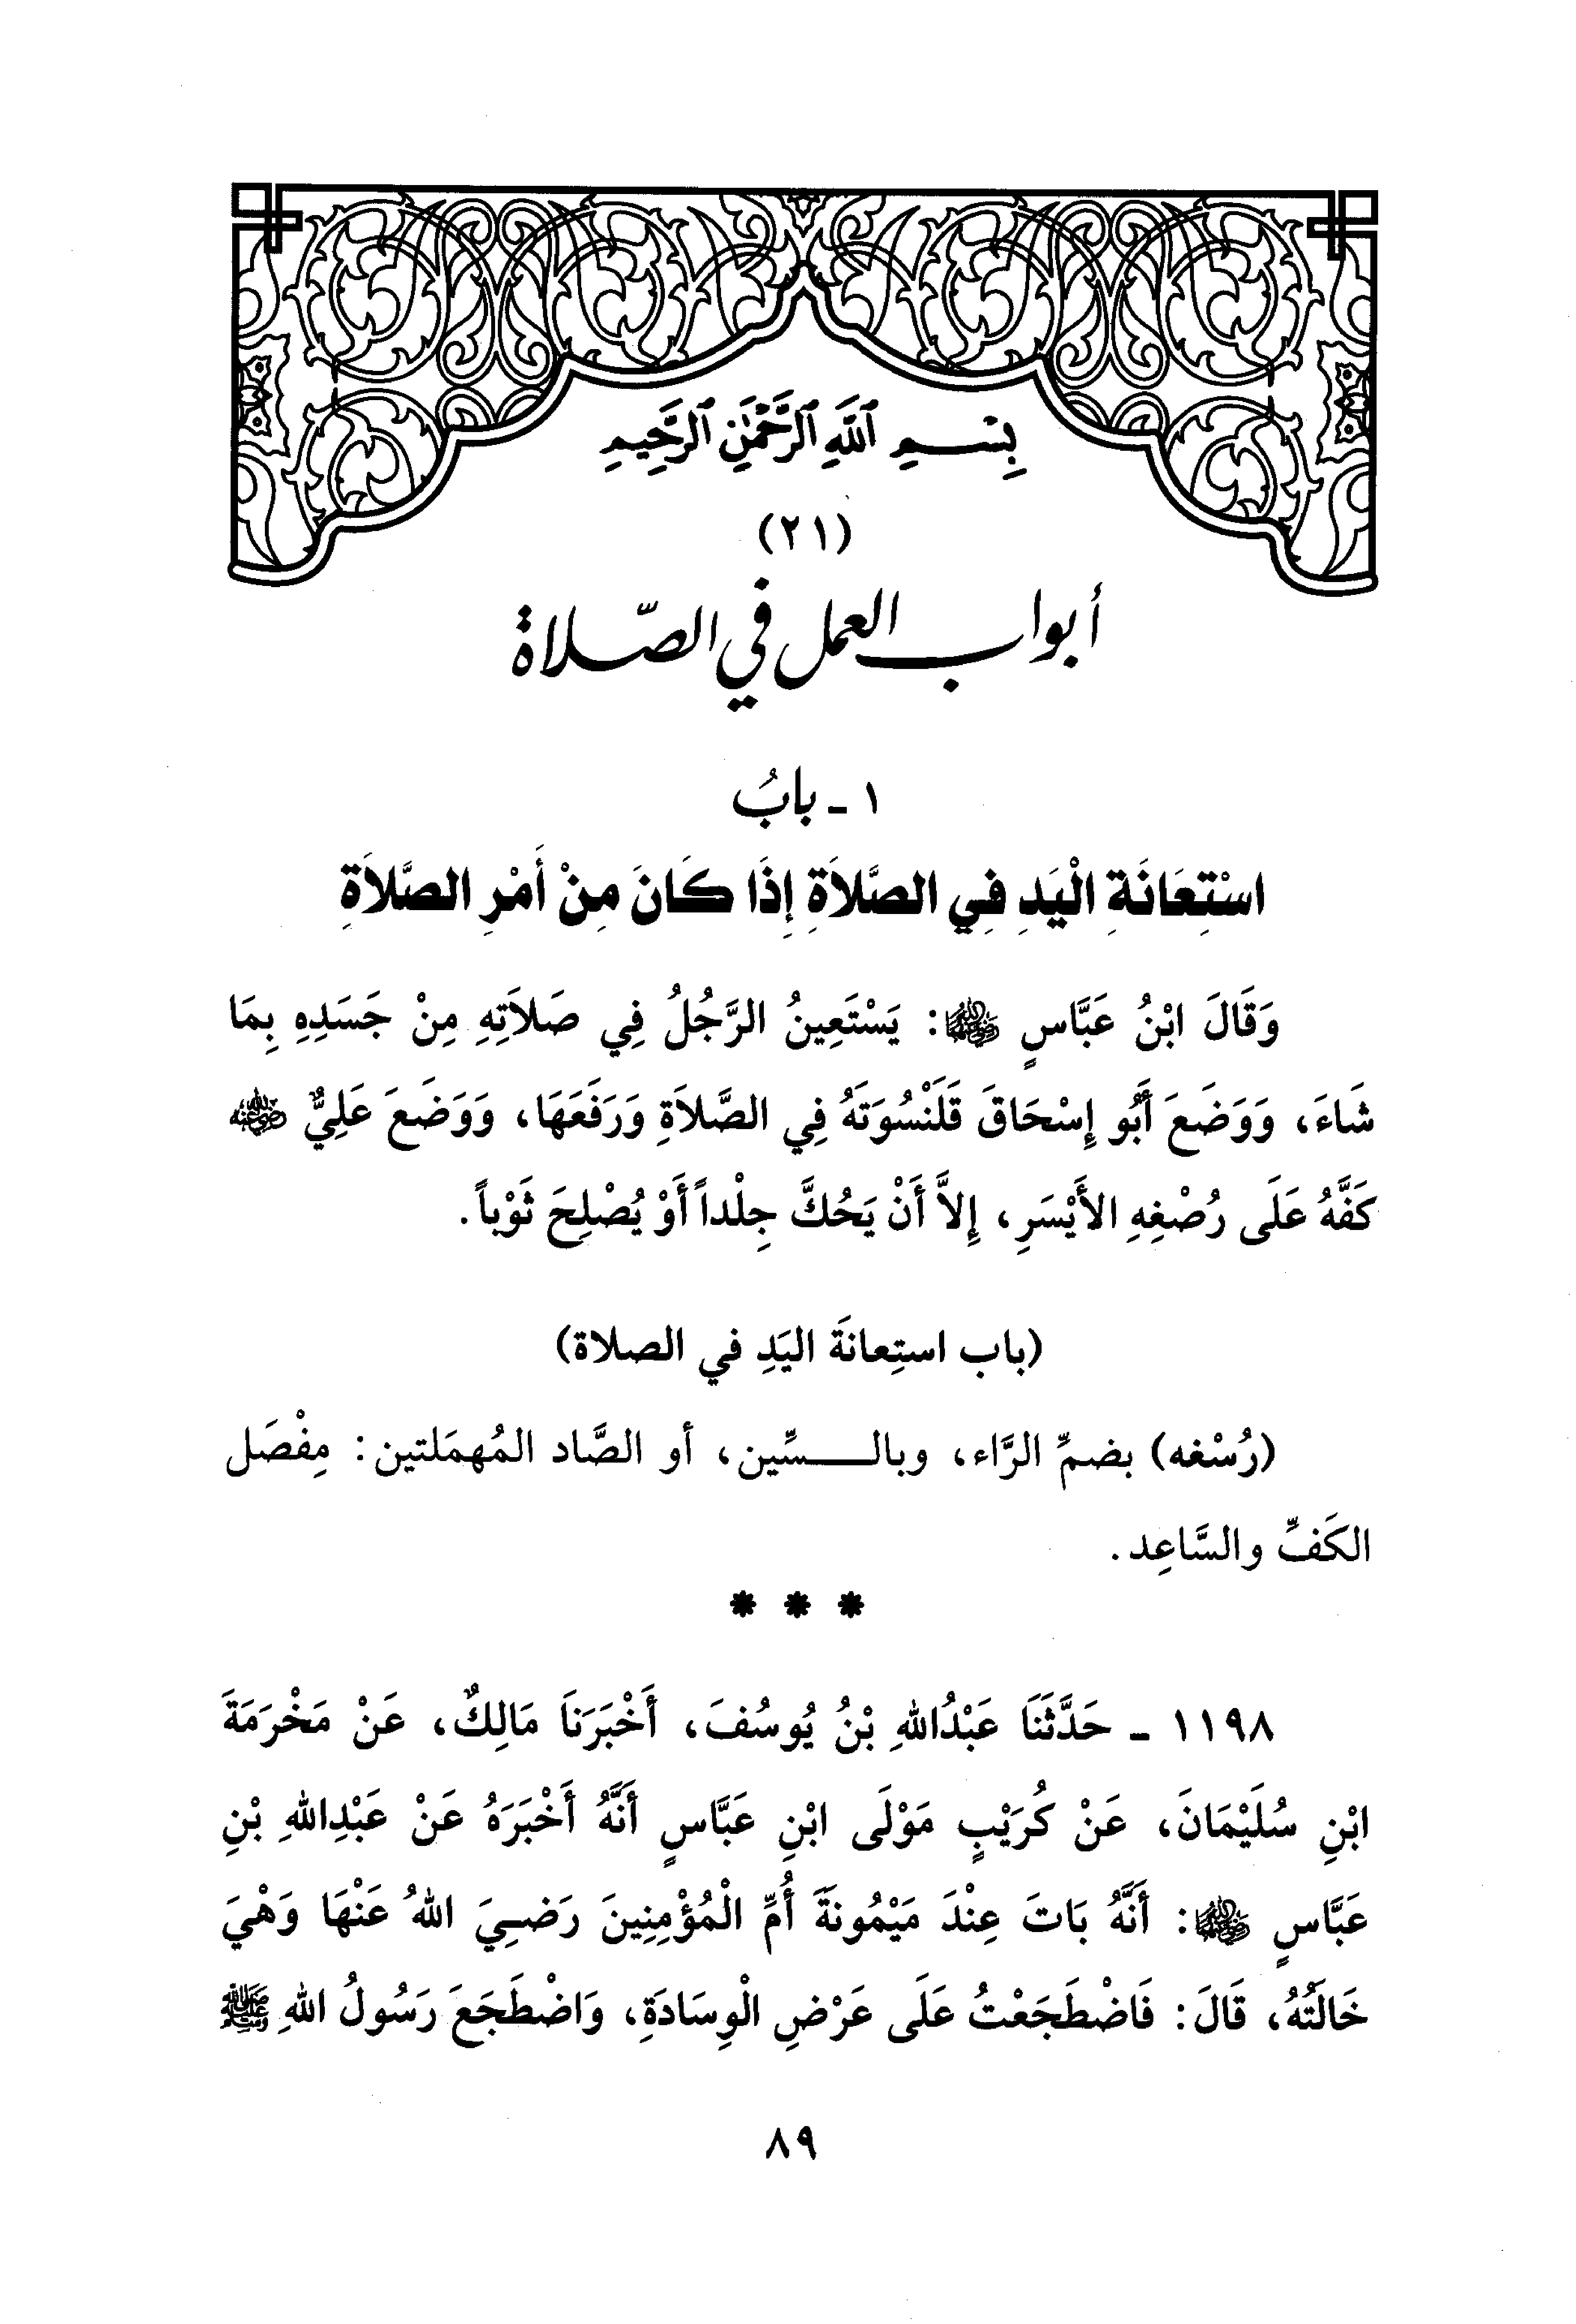 بِسْمِ ٱللَّهِ ٱلرَّحْمَٰنِ ٱلرَّحِيمِ
(٢١)
أبواب العمل في الصّلاة
١ ـ بابُ
اسْتِعَانَةِ الْيَدِ فِي الصَّلاَةِ إِذَا كَانَ مِنْ أَمْرِ الصَّلاَةِ
وَقَالَ ابْنُ عَبَّاسٍ رضي الله عنهما: يَسْتَعِينُ الرَّجُلُ فِي صَلاَتِهِ مِنْ جَسَدِهِ بِمَا
شَاءَ، وَوَضَعَ أَبُو إِسْحَاقَ قَلَنْسُوَتَهُ فِي الصَّلاَةِ وَرَفَعَهَا، وَوَضَعَ عَلِيٌّ رضي الله عنه
كَفَّهُ عَلَى رُصْغِهِ الأَيْسَرِ، إِلاَّ أَنْ يَحُكَّ جِلْداً أَوْ يُصْلِحَ ثَوْباً.
(باب استِعانَةَ اليَدِ في الصلاة)
(رُسْغه) بضمِّ الرَّاء، وبالـسِّين، أو الصَّاد المُهمَلتين: مِفْصَل
الكَفِّ والسَّاعِد.
* * *
١١٩٨ ـ حَدَّثَنَا عَبْدُاللهِ بْنُ يُوسُفَ، أَخْبَرَنَا مَالِكٌ، عَنْ مَخْرَمَةَ
ابْنِ سُلَيْمَانَ، عَنْ كُرَيْبٍ مَوْلَى ابْنِ عَبَّاسٍ أَنَّهُ أَخْبَرَهُ عَنْ عَبْدِاللهِ بْنِ
عَبَّاسٍ رضي الله عنهما: أَنَّهُ بَاتَ عِنْدَ مَيْمُونَةَ أُمِّ الْمُؤْمِنِينَ رَضِيَ اللهُ عَنْهَا وَهْيَ
خَالَتُهُ، قَالَ: فَاضْطَجَعْتُ عَلَى عَرْضِ الْوِسَادَةِ، وَاضْطَجَعَ رَسُولُ اللهِ ﷺ
٨٩